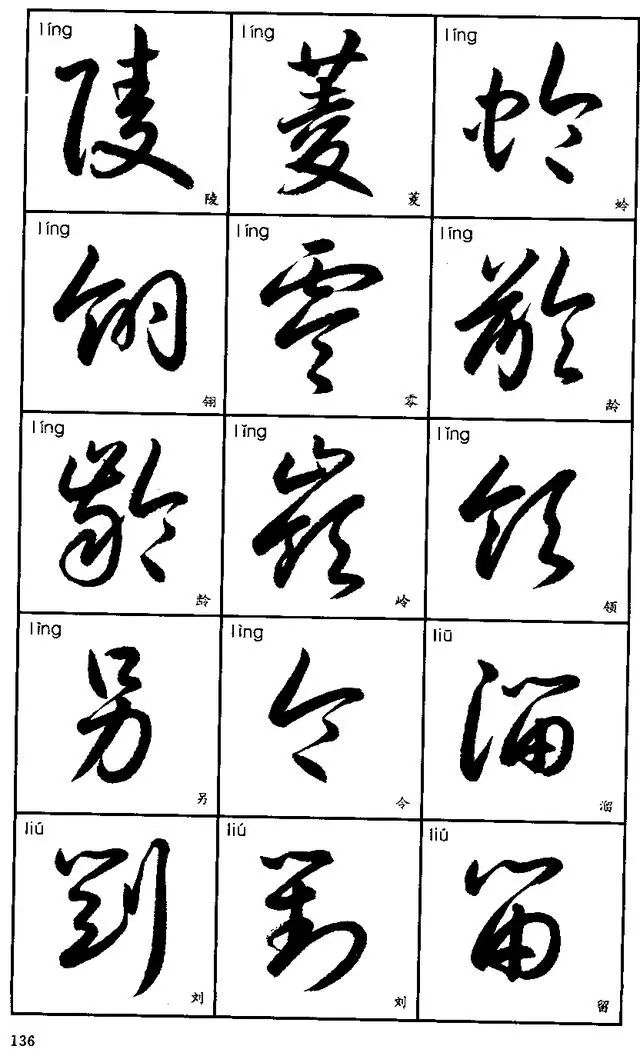 líng líng líng
陵 菱 蛉
陵 菱 蛉
líng líng líng
翎 零 龄
翎 零 龄
líng lǐng lǐng
齡 嶺 領
龄 岭 领
lìng lìng liū
另 令 溜
另 令 溜
liú liú liú
劉 劉 留
刘 刘 留
136